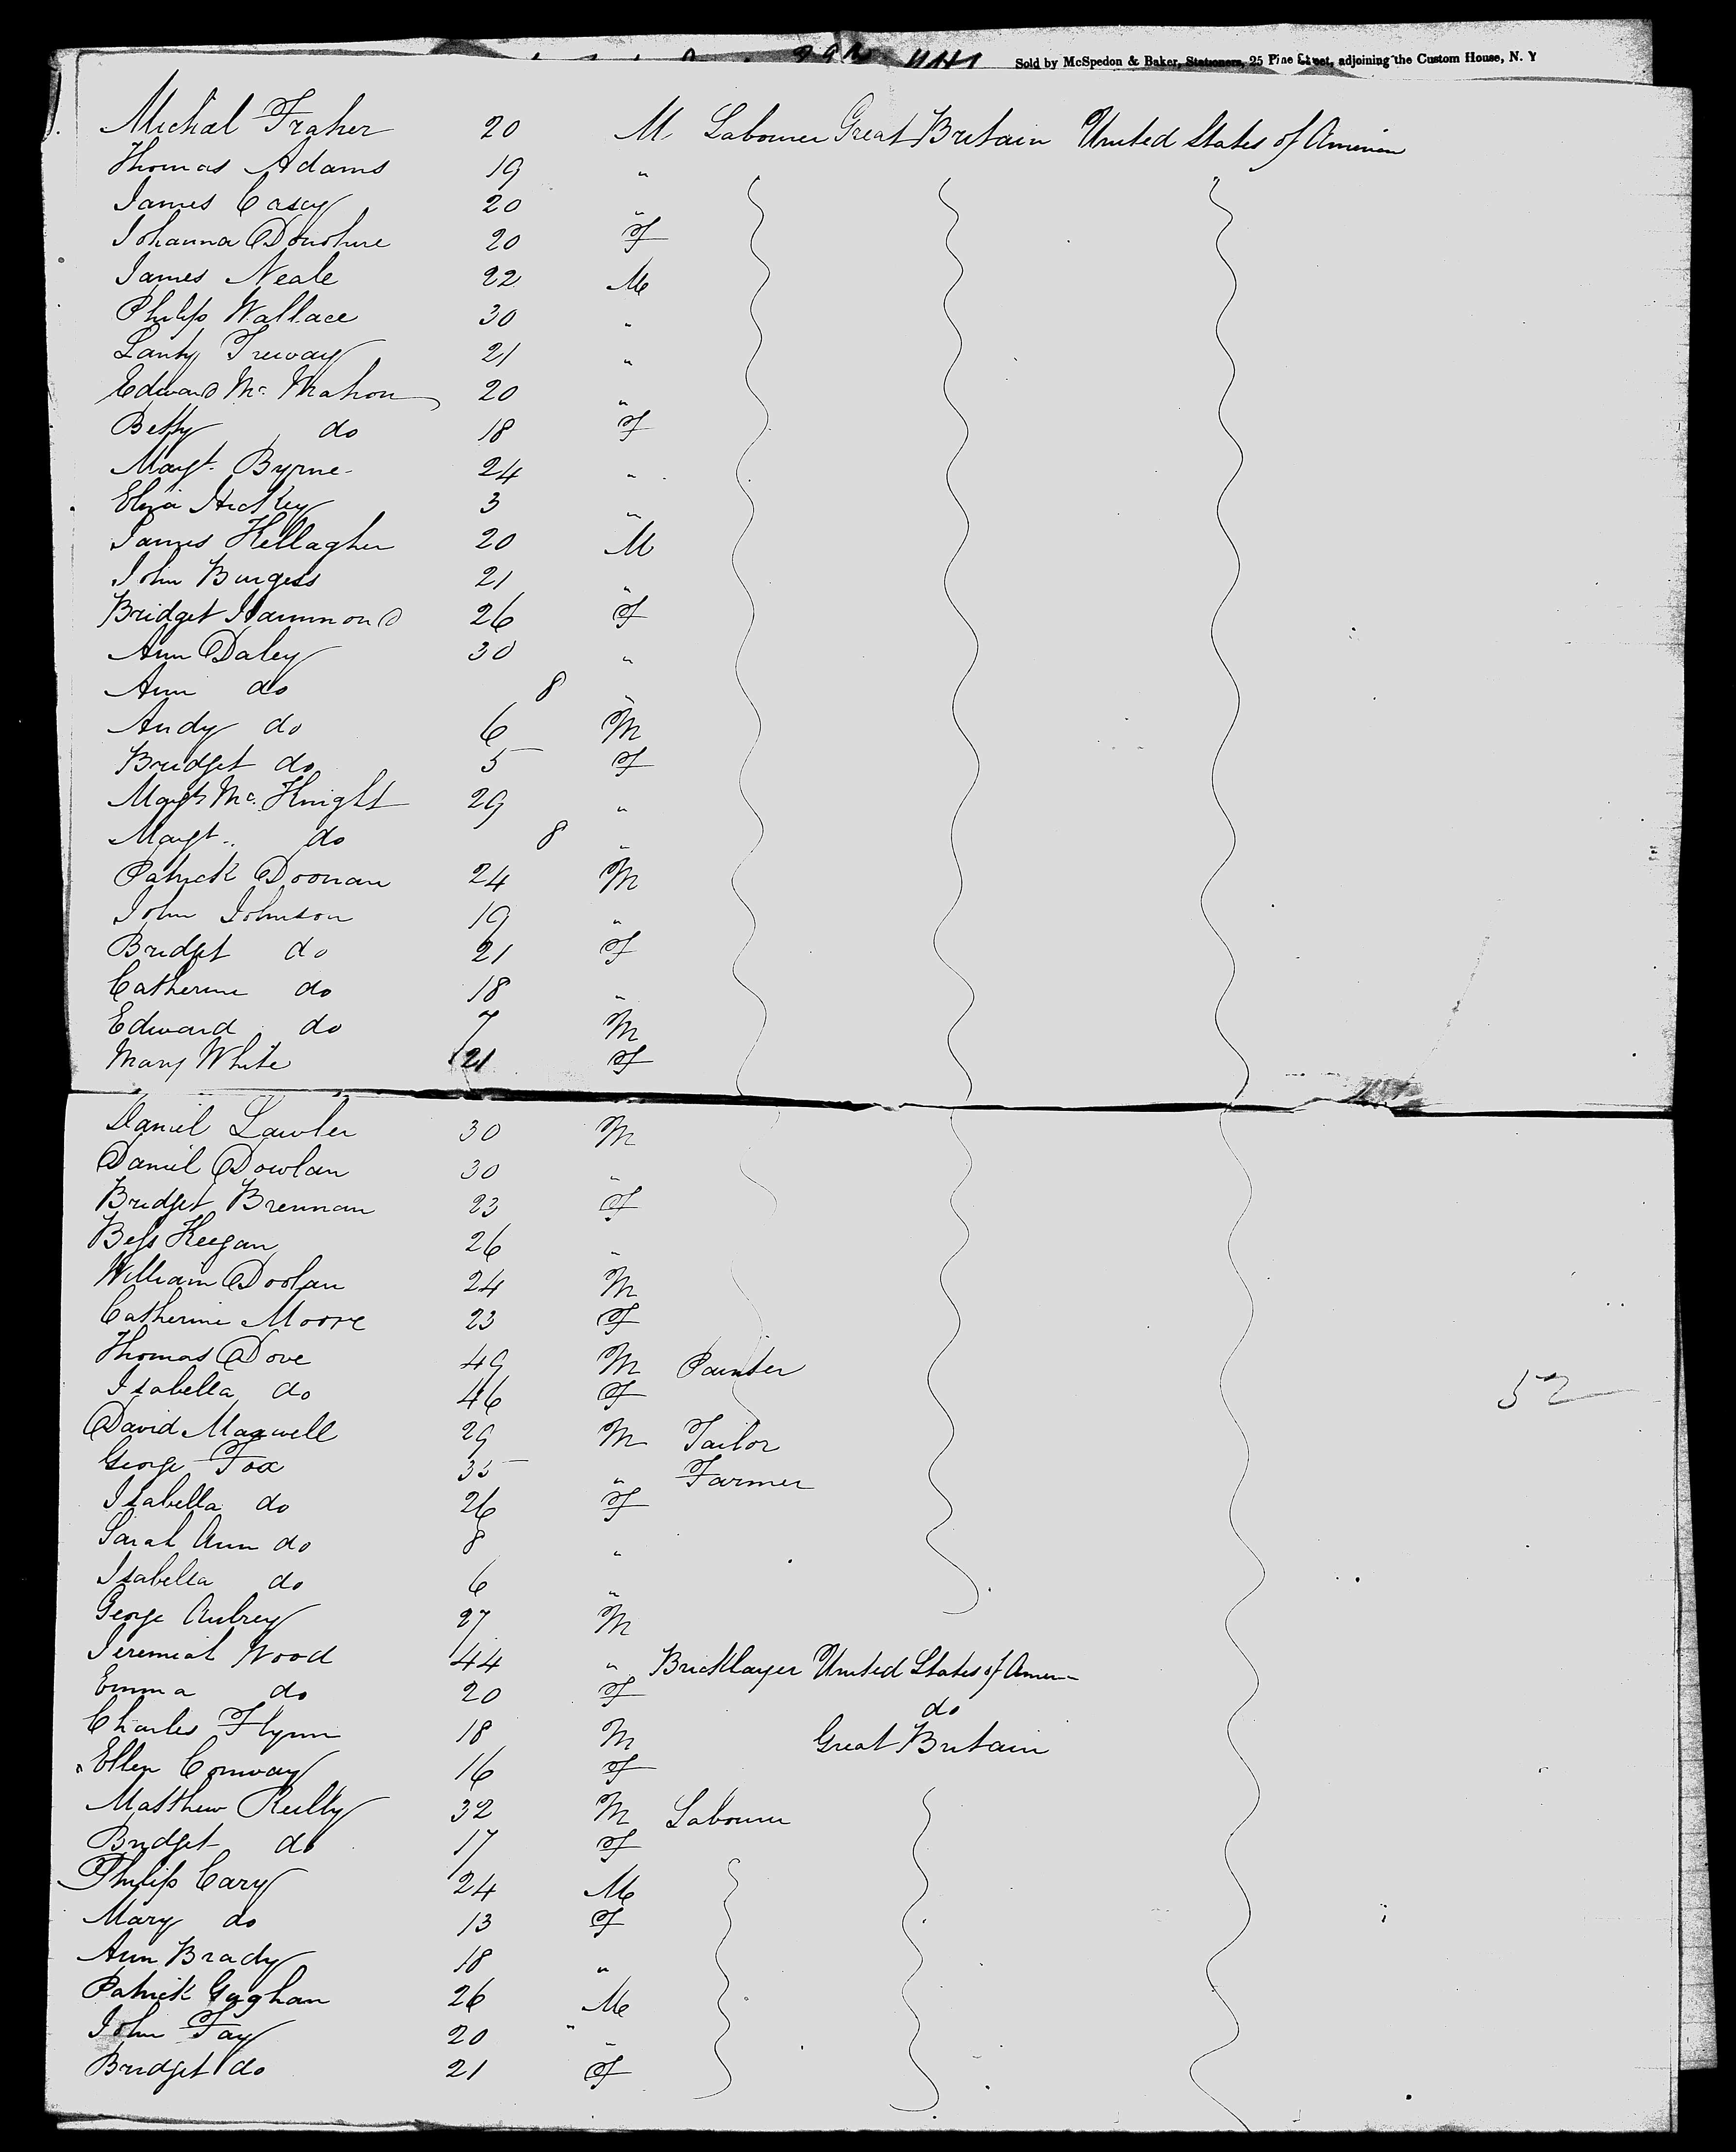 Sold by McSpedon & Baker, Stationers, 25 Pine Street, adjoining the Custom House, N. Y
Michal Fraher 20 M Labourer Great Britain United States of America
Thomas Adams 19 "
James Casey 20 "
Johanna Donohue 20 F
James Neale 22 M
Philip Wallace 30 "
Lanty 21 "
Edward Mc Mahon 20 "
Betty do 18 F
Margt. Byrne 24 "
Eliza Hickey 3 "
James Kellagher 20 M
John Burgess 21 "
Bridget Hammond 26 F
Ann Daley 30 "
Ann do 8 "
Andy do 6 M
Bridget do 5 F
Margt Mc Knight 29 "
Margt. do 8 "
Patrick Doonan 24 M
John Johnson 19 "
Bridget do 21 F
Catherine do 18 "
Edward do 7 M
Mary White 21 F
Daniel Lawler 30 M
Daniel Dowlan 30 "
Bridget Brennan 23 F
Bess Keegan 26 "
William Doolan 24 M
Catherine Moore 23 F
Thomas Dove 49 M Painter
Isabella do 46 F
David Maxwell 29 M Tailor
George Fox 35 " Farmer
Isabella do 26 F
Sarah Ann do 8 "
Isabella do 6 "
George Aubrey 27 M
Jeremiah Wood 44 " Bricklayer United States of Amer
Emma do 20 F do
Charles Flynn 18 M Great Britain
Ellen Conway 16 F
Matthew Reilly 32 M Labourer
Bridget do 17 F
Philip Cary 24 M
Mary do 13 F
Ann Brady 18 "
Patrick Gaghan 26 M
John Fay 20 "
Bridget do 21 F
52